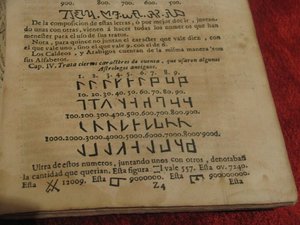 900. 800. 700. 600. 500.
De la composicion de estas letras, ò por mejor decir, juntando
unas con otras, vienen à hacer todos los numeros que han
menester para el uso de sus tratos.
Nota, para quince no juntan el caracter que vale diez, con
el que vale uno, sino el que vale 9. con el de 6.
Los Caldeos, y Arabigos cuentan de la misma manera con
sus Alfabetos.
Cap. IV. Trata ciertos caracteres de cuenta, que usaron algunos
Astrologos antiguos.
1. 2. 3. 4. 5. 6. 7. 8. 9.
10. 20. 30. 40. 50. 60. 70. 80. 90.
100. 200. 300. 400. 500. 600. 700. 800. 900.
1000. 2000. 3000. 4000. 5000. 6000. 7000. 8000. 9000.
Ultra de estos numeros, juntando unos con otros, denotaban
la cantidad que querian. Esta figura vale 557. Esta 7240.
Esta 12009. Esta Esta
Z4